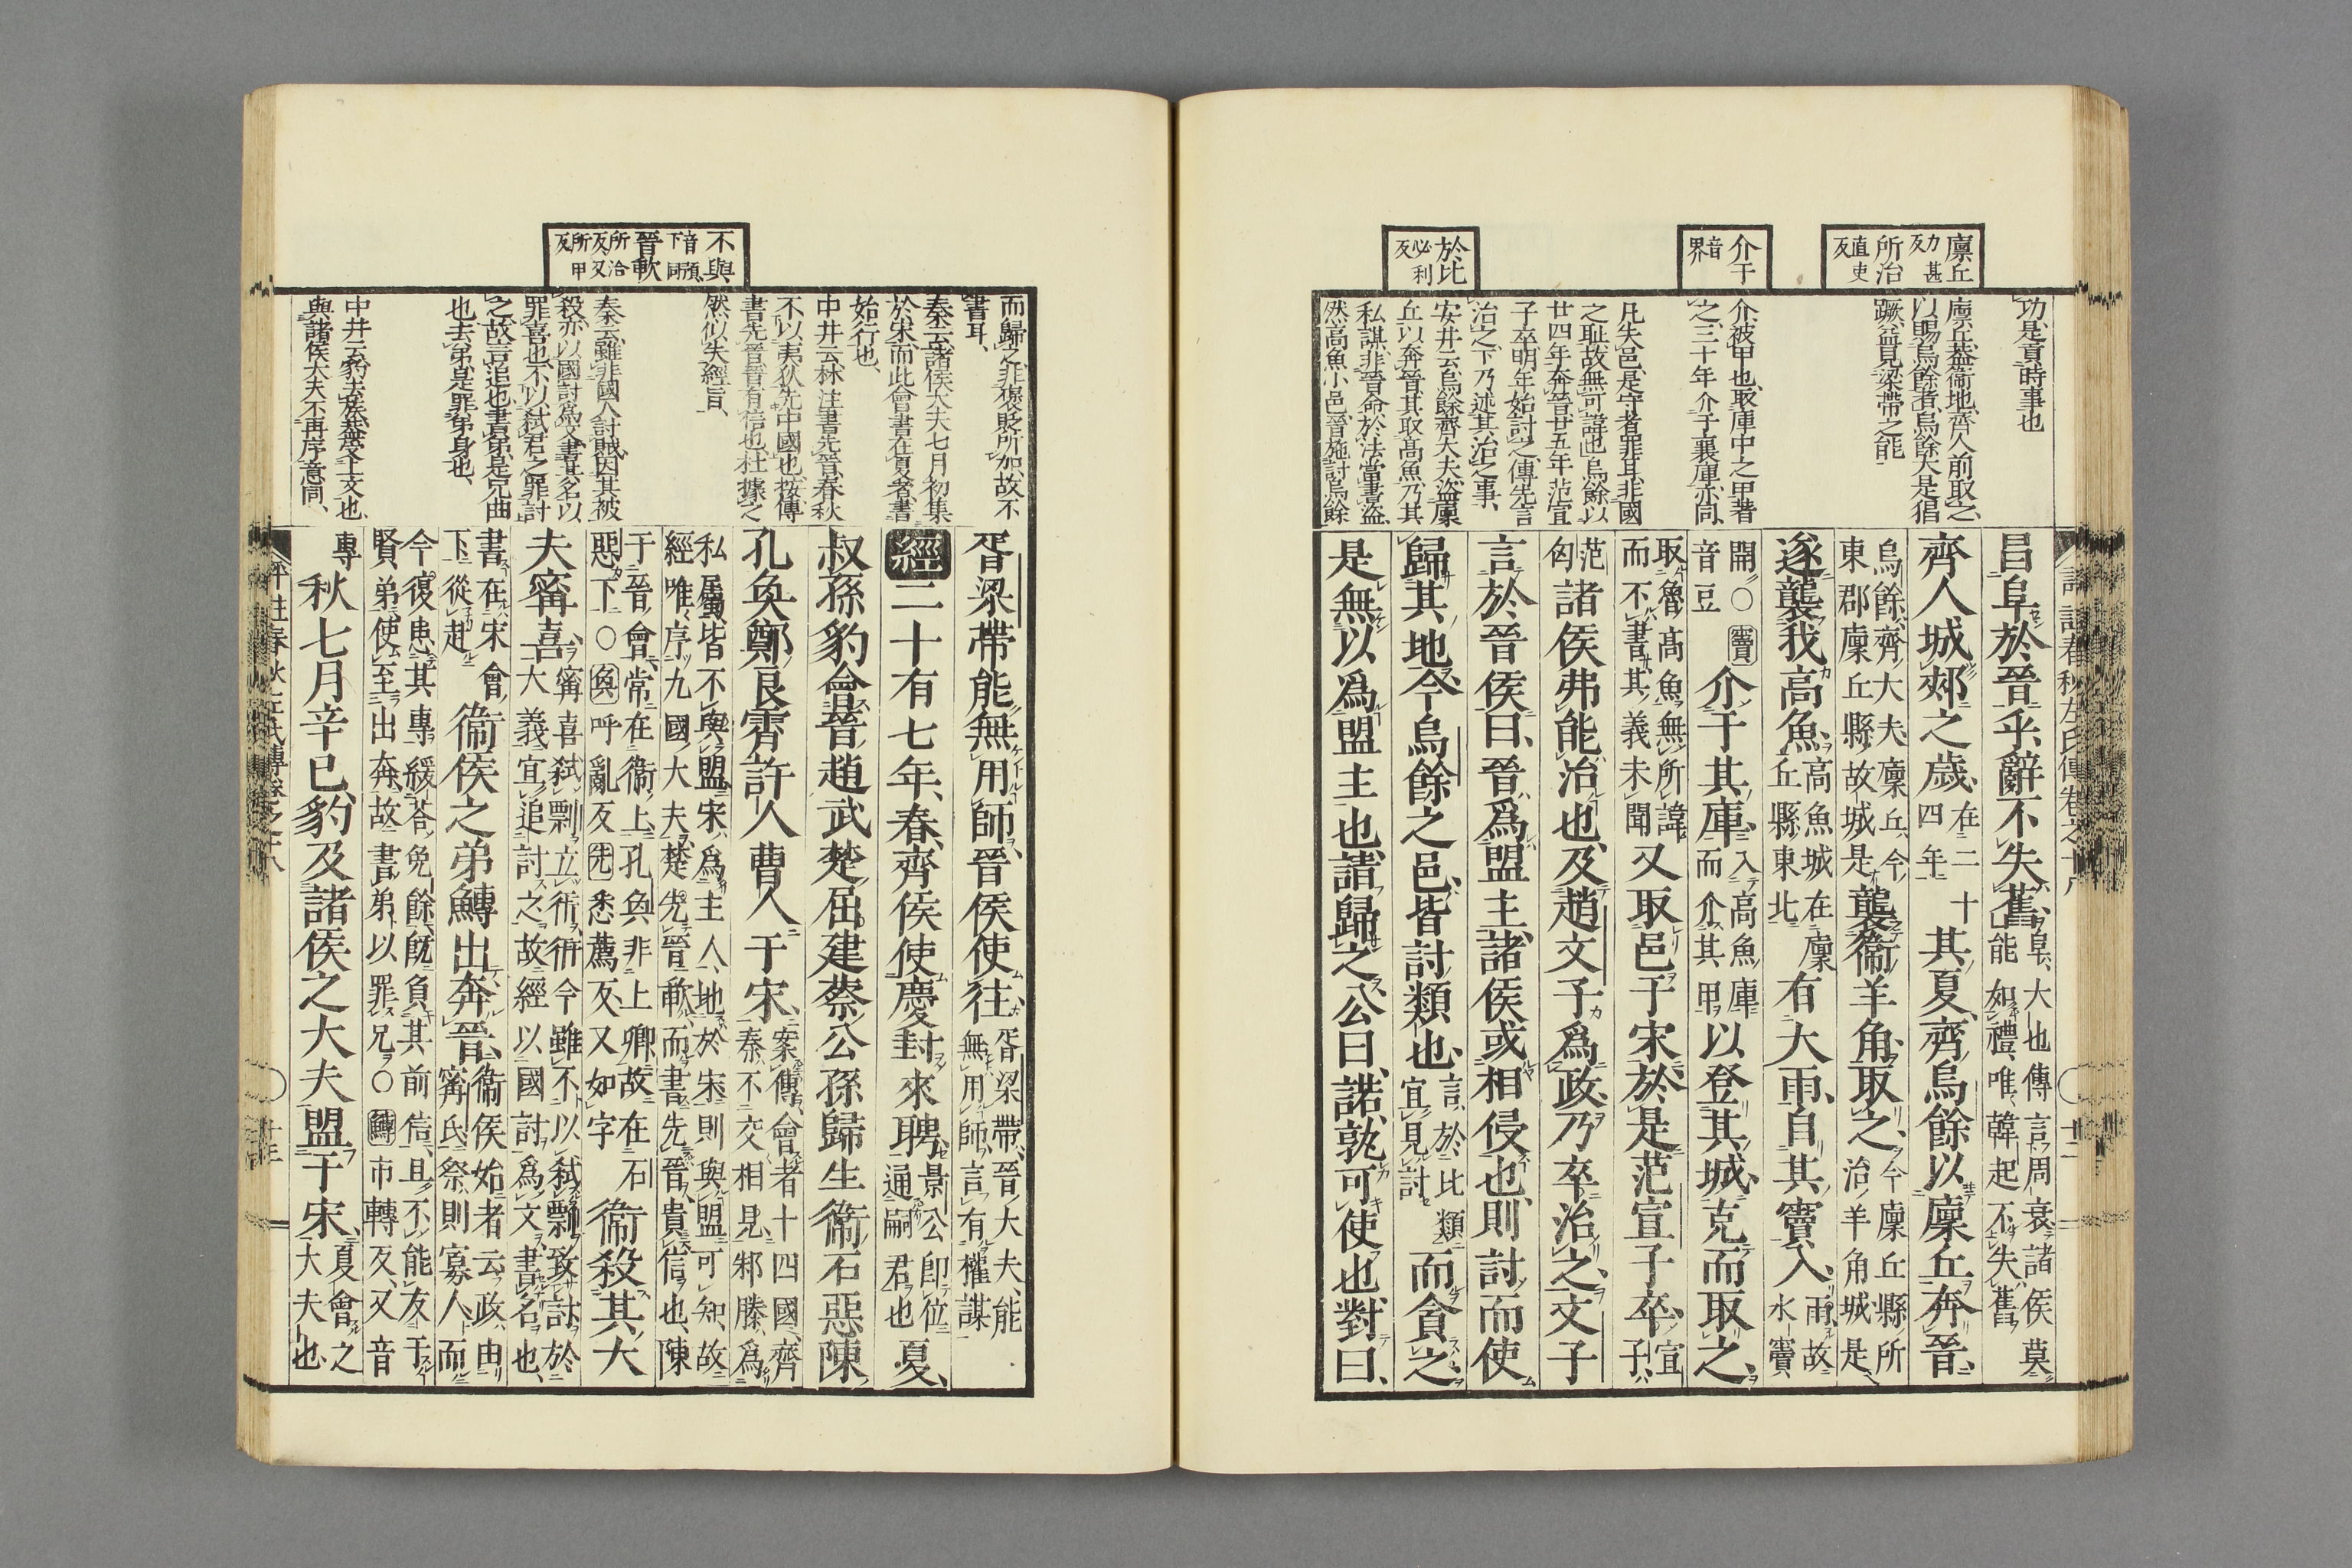 廩丘力甚反所治直吏反
介于音界
於比必利反
功是真時事也
廩丘蓋衞地齊人前取之
以賜烏餘者烏餘大是猖
蹶益見梁帶之能
介被甲也取庫中之甲著
之三十年介于襄庫亦同
凡失邑是守者罪耳非國
之耻故無可諱也烏餘以
廿四年奔晉廿五年范宣
子卒明年始討之傳先言
治之下乃述其治之事
安井云烏餘齊大夫盜廩
丘以奔晉其取高魚乃其
私謀非晉命於法當書盜
然高魚小邑晉施討烏餘
昌阜於晉乎辭不失舊阜大也傳言周衰諸侯莫能如禮唯韓起不失舊
齊人城郟之歲在二十四年其夏齊烏餘以廩丘奔晉
烏餘齊大夫廩丘今東郡廩丘縣故城是襲衞羊角取之今廩丘縣所治羊角城是
遂襲我高魚高魚城在廩丘縣東北有大雨自其竇入雨故水竇
開○竇音豆介于其庫入高魚庫而介其甲以登其城克而取之
取魯高魚無所諱而不書其義未聞又取邑于宋於是范宣子卒宣子
范匄諸侯弗能治也及趙文子爲政乃卒治之文子
言於晉侯曰晉爲盟主諸侯或相侵也則討而使
歸其地今烏餘之邑皆討類也言於比類宜見討而貪之
是無以爲盟主也請歸之公曰諾孰可使也對曰
不與音預下同晉歃所洽反又所甲反
而歸之非復貶所加故不
書耳
秦云諸侯大夫七月初集
於宋而此會書在夏者書
始行也
中井云林注書先晉春秋
不以夷狄先中國也按傳
書先晉晉有信也杜據之
然似失經旨
秦云雖非國人討賊因其被
殺亦以國討爲文書其名以
罪喜也不以弑君之罪討
之故言追也書弟是兄曲
也去弟是罪弟身也
中井云豹去族蒙上文也
與諸侯大夫不再序意同
胥梁帶能無用師晉侯使往胥梁帶晉大夫能無用師言有權謀
經二十有七年春齊侯使慶封來聘景公即位通嗣君也夏
叔孫豹會晉趙武楚屈建蔡公孫歸生衞石惡陳
孔奐鄭良霄許人曹人于宋案傳會者十四國齊秦不交相見邾滕爲
私屬皆不與盟宋爲主人地於宋則與盟可知故經唯序九國大夫楚先晉歃而書先晉貴信也陳
于晉會常在衞上孔奐非上卿故在石惡下○奐呼亂反先悉薦反又如字衞殺其大
夫甯喜甯喜弑剽立衎衎今雖不以弑剽致討於大義宜追討之故經以國討爲文書名也
書在宋會下從赴衞侯之弟鱄出奔晉衞侯始者云政由甯氏祭則寡人而
今復患其專緩荅免餘既負其前信且不能友于賢弟使至出奔故書弟以罪兄○鱄市轉反又音
專秋七月辛巳豹及諸侯之大夫盟于宋夏會之大夫也